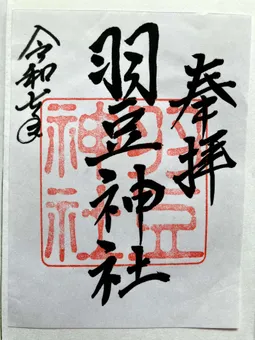 奉拝
羽豆神社
令和七年
羽豆
神社